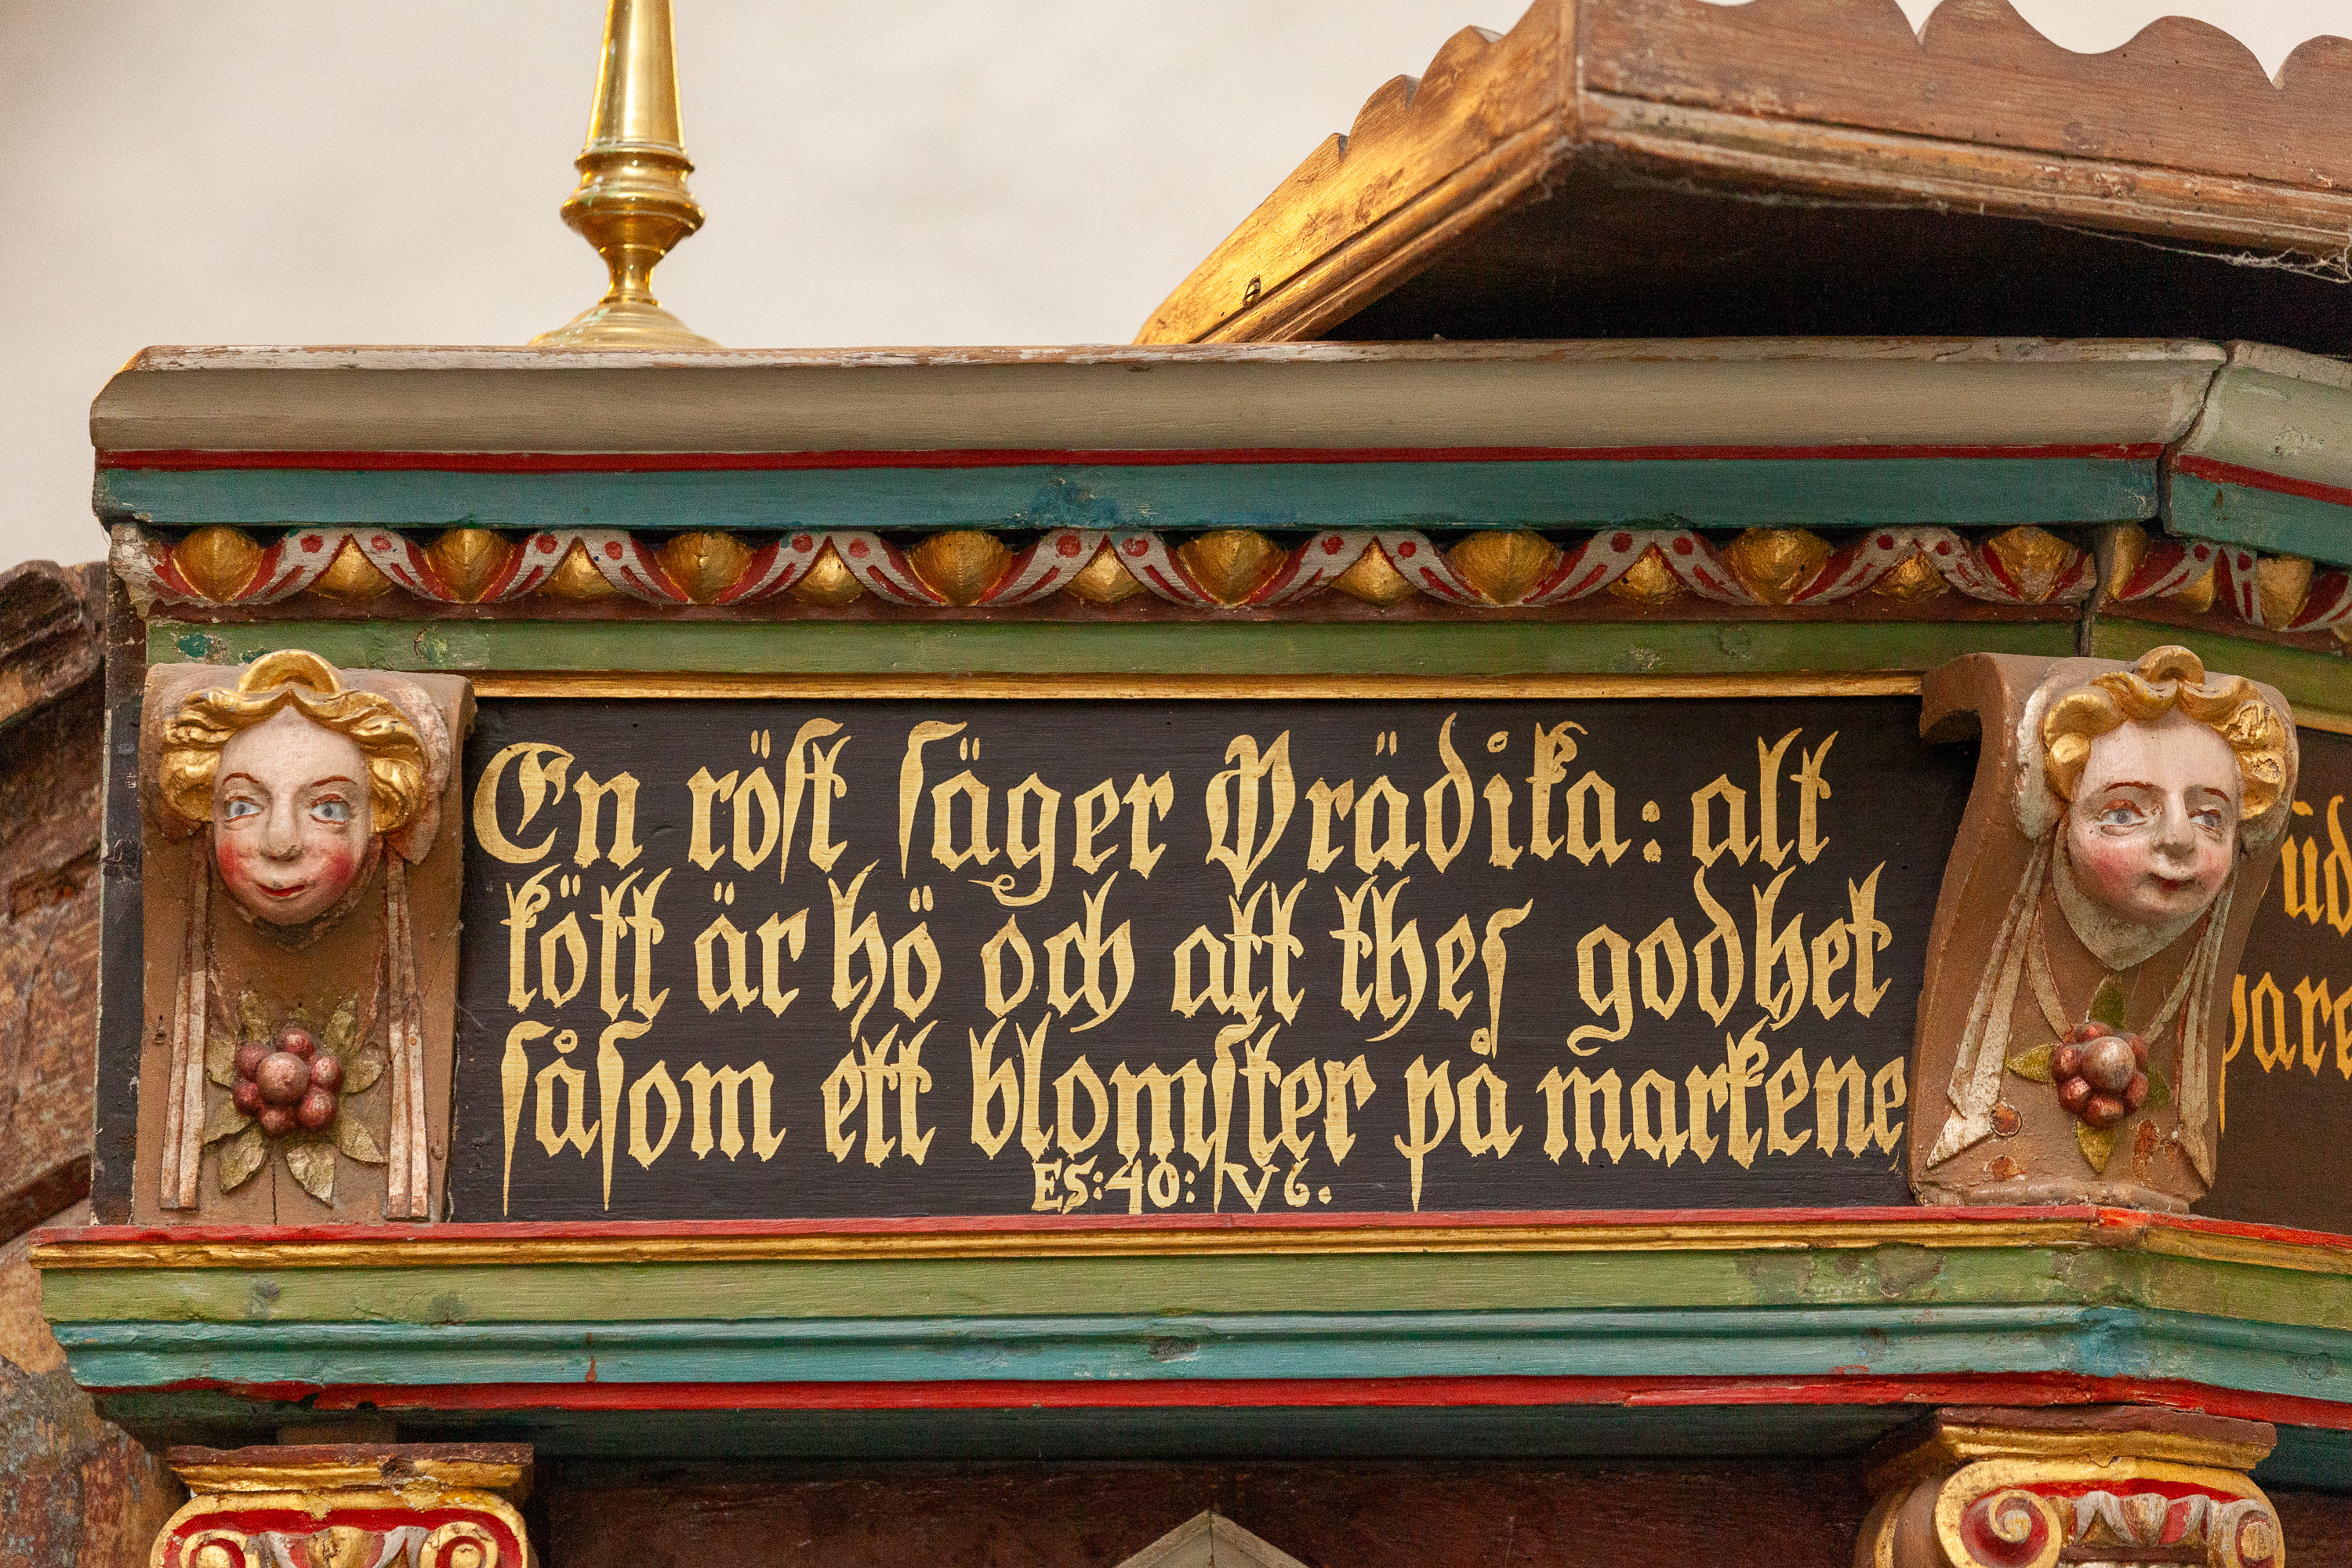 En röst säger Prädika: alt
kött är hö och alt thes godhet
såsom ett blomster på markene
ES: 40: V 6.